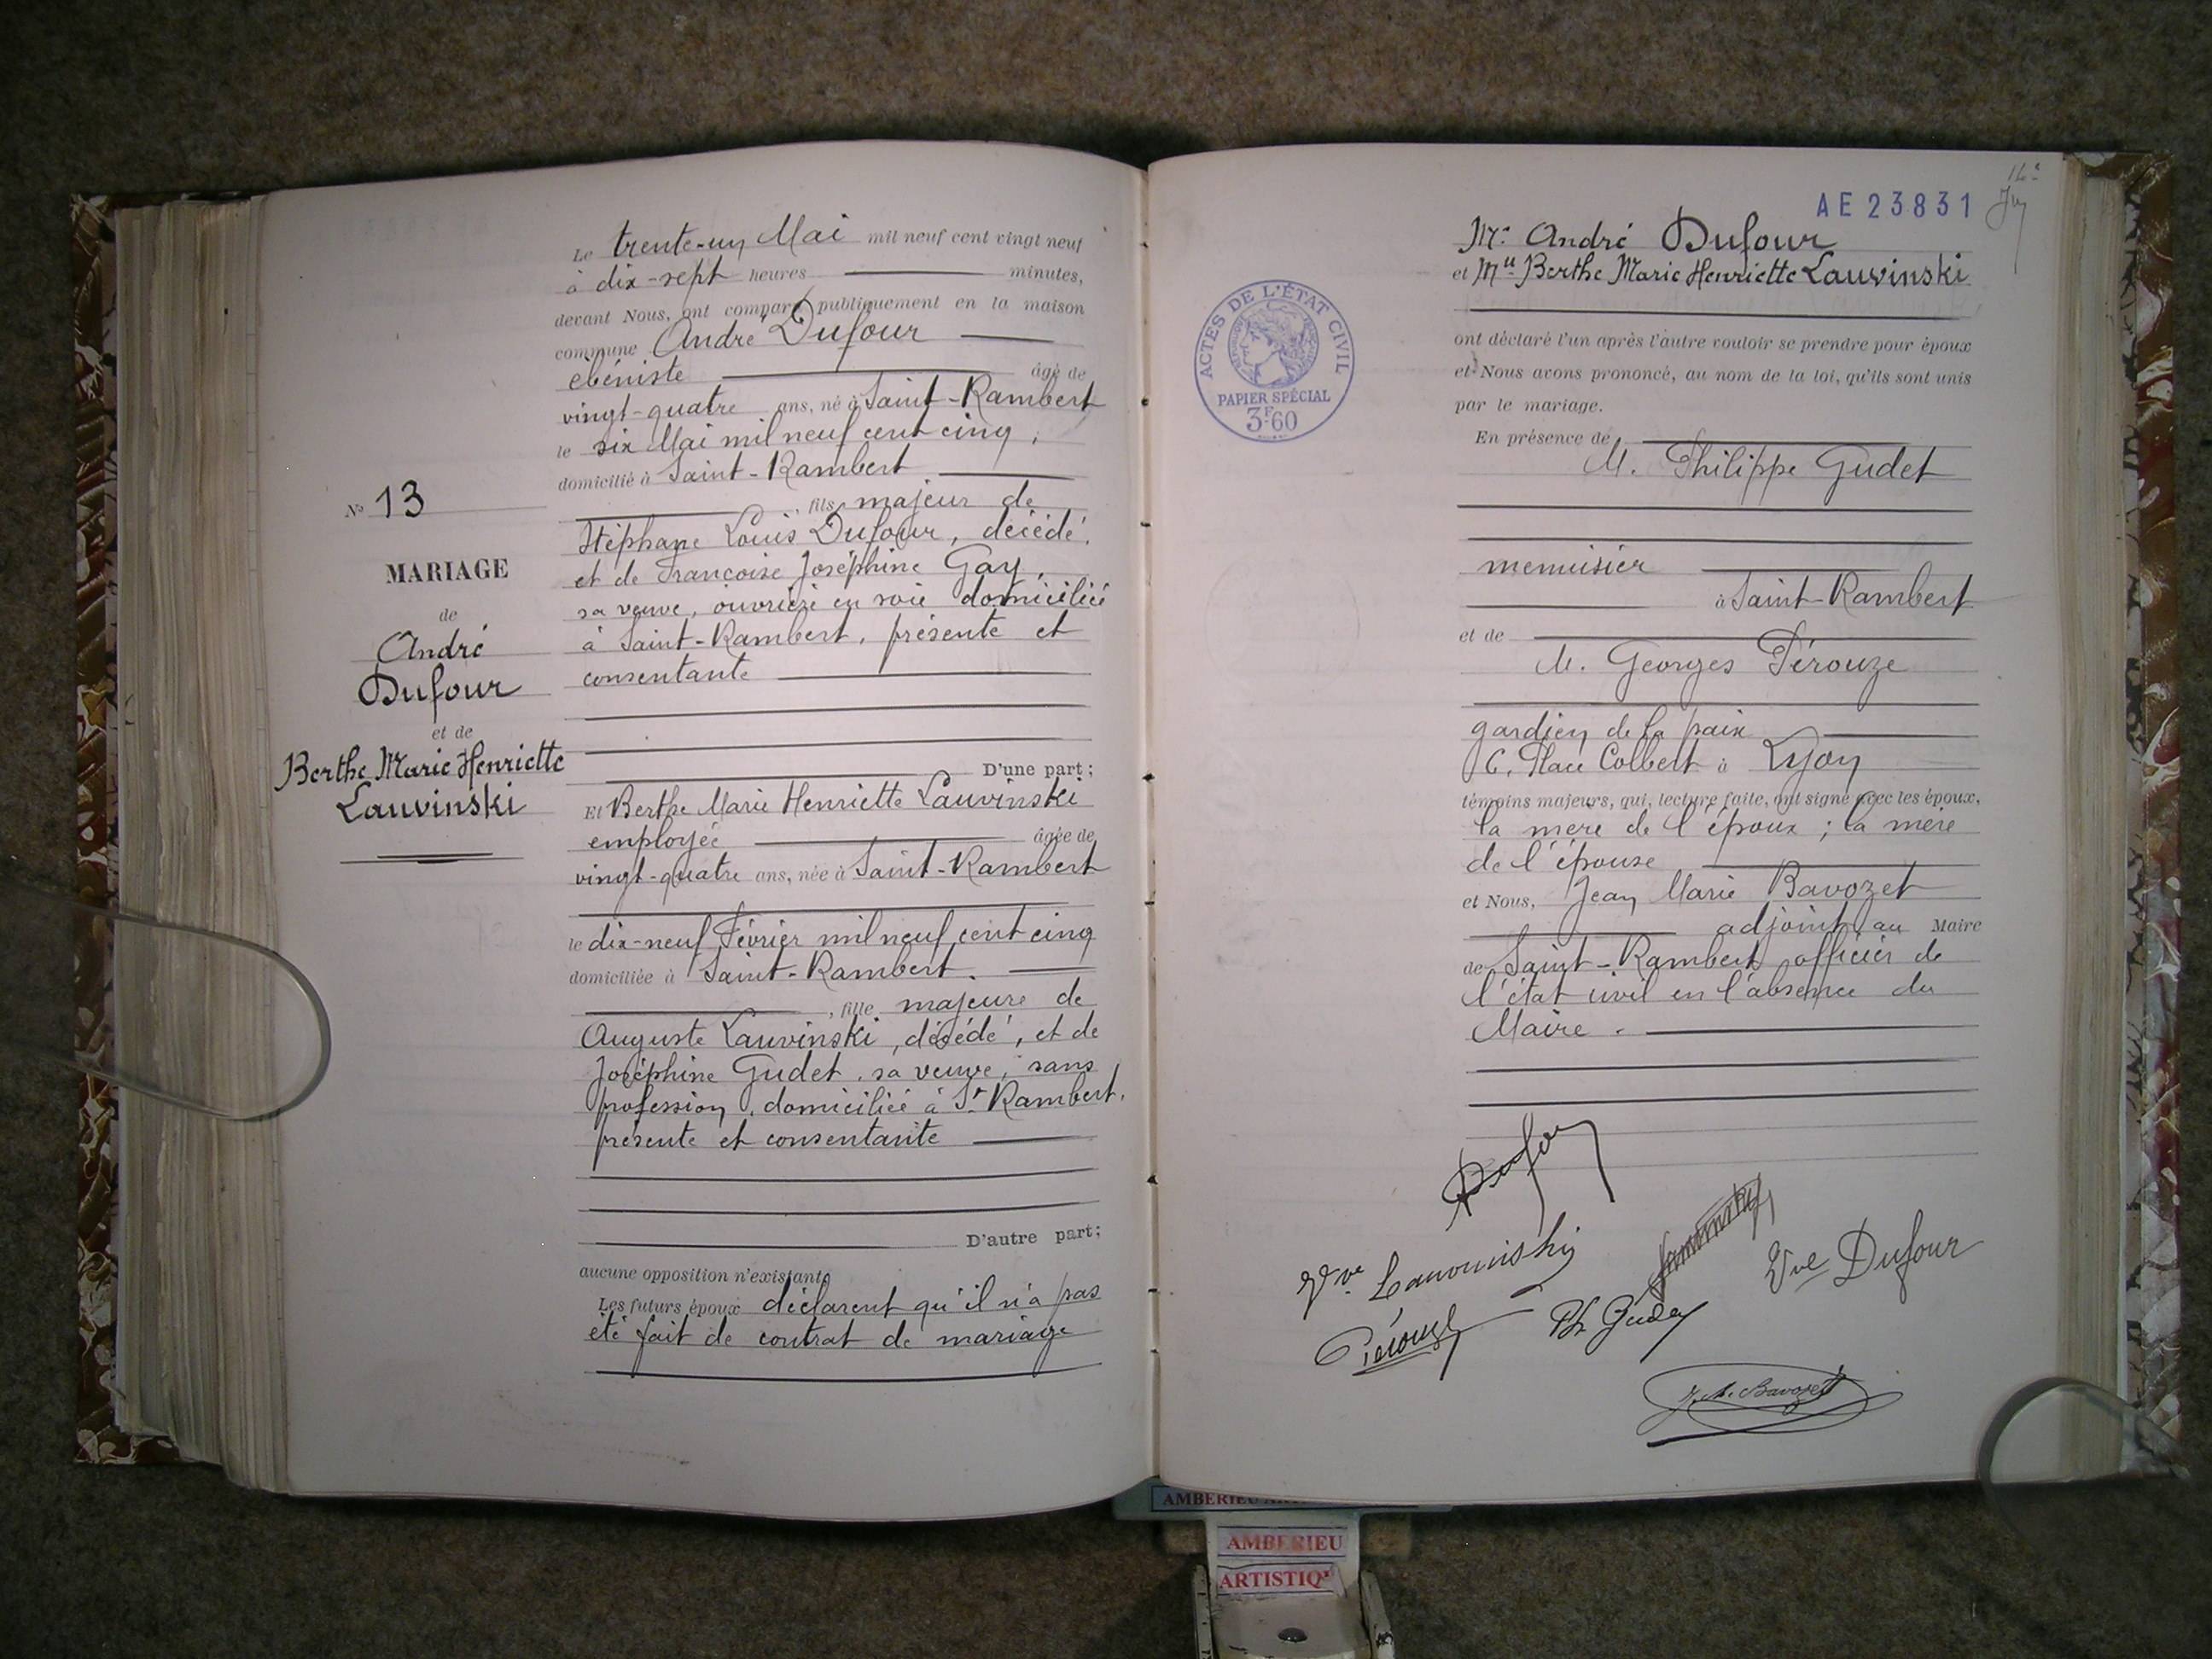 Le trente-un Mai mil neuf cent vingt neuf
à dix-sept heures minutes,
devant Nous, ont comparu publiquement en la maison
commune André Dufour
ebéniste âgé de
vingt-quatre ans, né à Saint-Rambert
le six Mai mil neuf cent cinq,
domicilié à Saint-Rambert
, fils majeur de
Stéphane Louis Dufour, décédé,
et de Françoise Joséphine Gay,
sa veuve, ouvrière en soie domiciliée
à Saint-Rambert, présente et
consentante
D'une part;
Et Berthe Marie Henriette Lauvinski
employée âgée de
vingt-quatre ans, née à Saint-Rambert
le dix-neuf Février mil neuf cent cinq
domiciliée à Saint-Rambert.
, fille majeure de
Auguste Lauvinski, décédé, et de
Joséphine Gudet, sa veuve, sans
profession, domiciliée à St Rambert,
présente et consentante
D'autre part;
aucune opposition n'existant,
Les futurs époux déclarent qu'il n'a pas
été fait de contrat de mariage
No 13
MARIAGE
de
André
Dufour
et de
Berthe Marie Henriette
Lauvinski
AE 23831
Mr André Dufour
et Mlle Berthe Marie Henriette Lauvinski
ont déclaré l'un après l'autre vouloir se prendre pour époux
et Nous avons prononcé, au nom de la loi, qu'ils sont unis
par le mariage.
En présence de
M. Philippe Gudet
menuisier
à Saint-Rambert
et de
M. Georges Pérouze
gardien de la paix
6, Place Colbert à Lyon
témoins majeurs, qui, lecture faite, ont signé avec les époux,
la mère de l'époux; la mère
de l'épouse
et Nous, Jean Marie Bavozet
adjoint au Maire
de Saint-Rambert officier de
l'état civil en l'absence du
Maire.
ACTES DE L'ÉTAT CIVIL
PAPIER SPÉCIAL
3F60
Dufour
Vve Lauvinski
Vve Dufour
Pérouze
Ph Gudet
J. M. Bavozet
AMBERIEU
AMBERIEU
ARTISTIQ